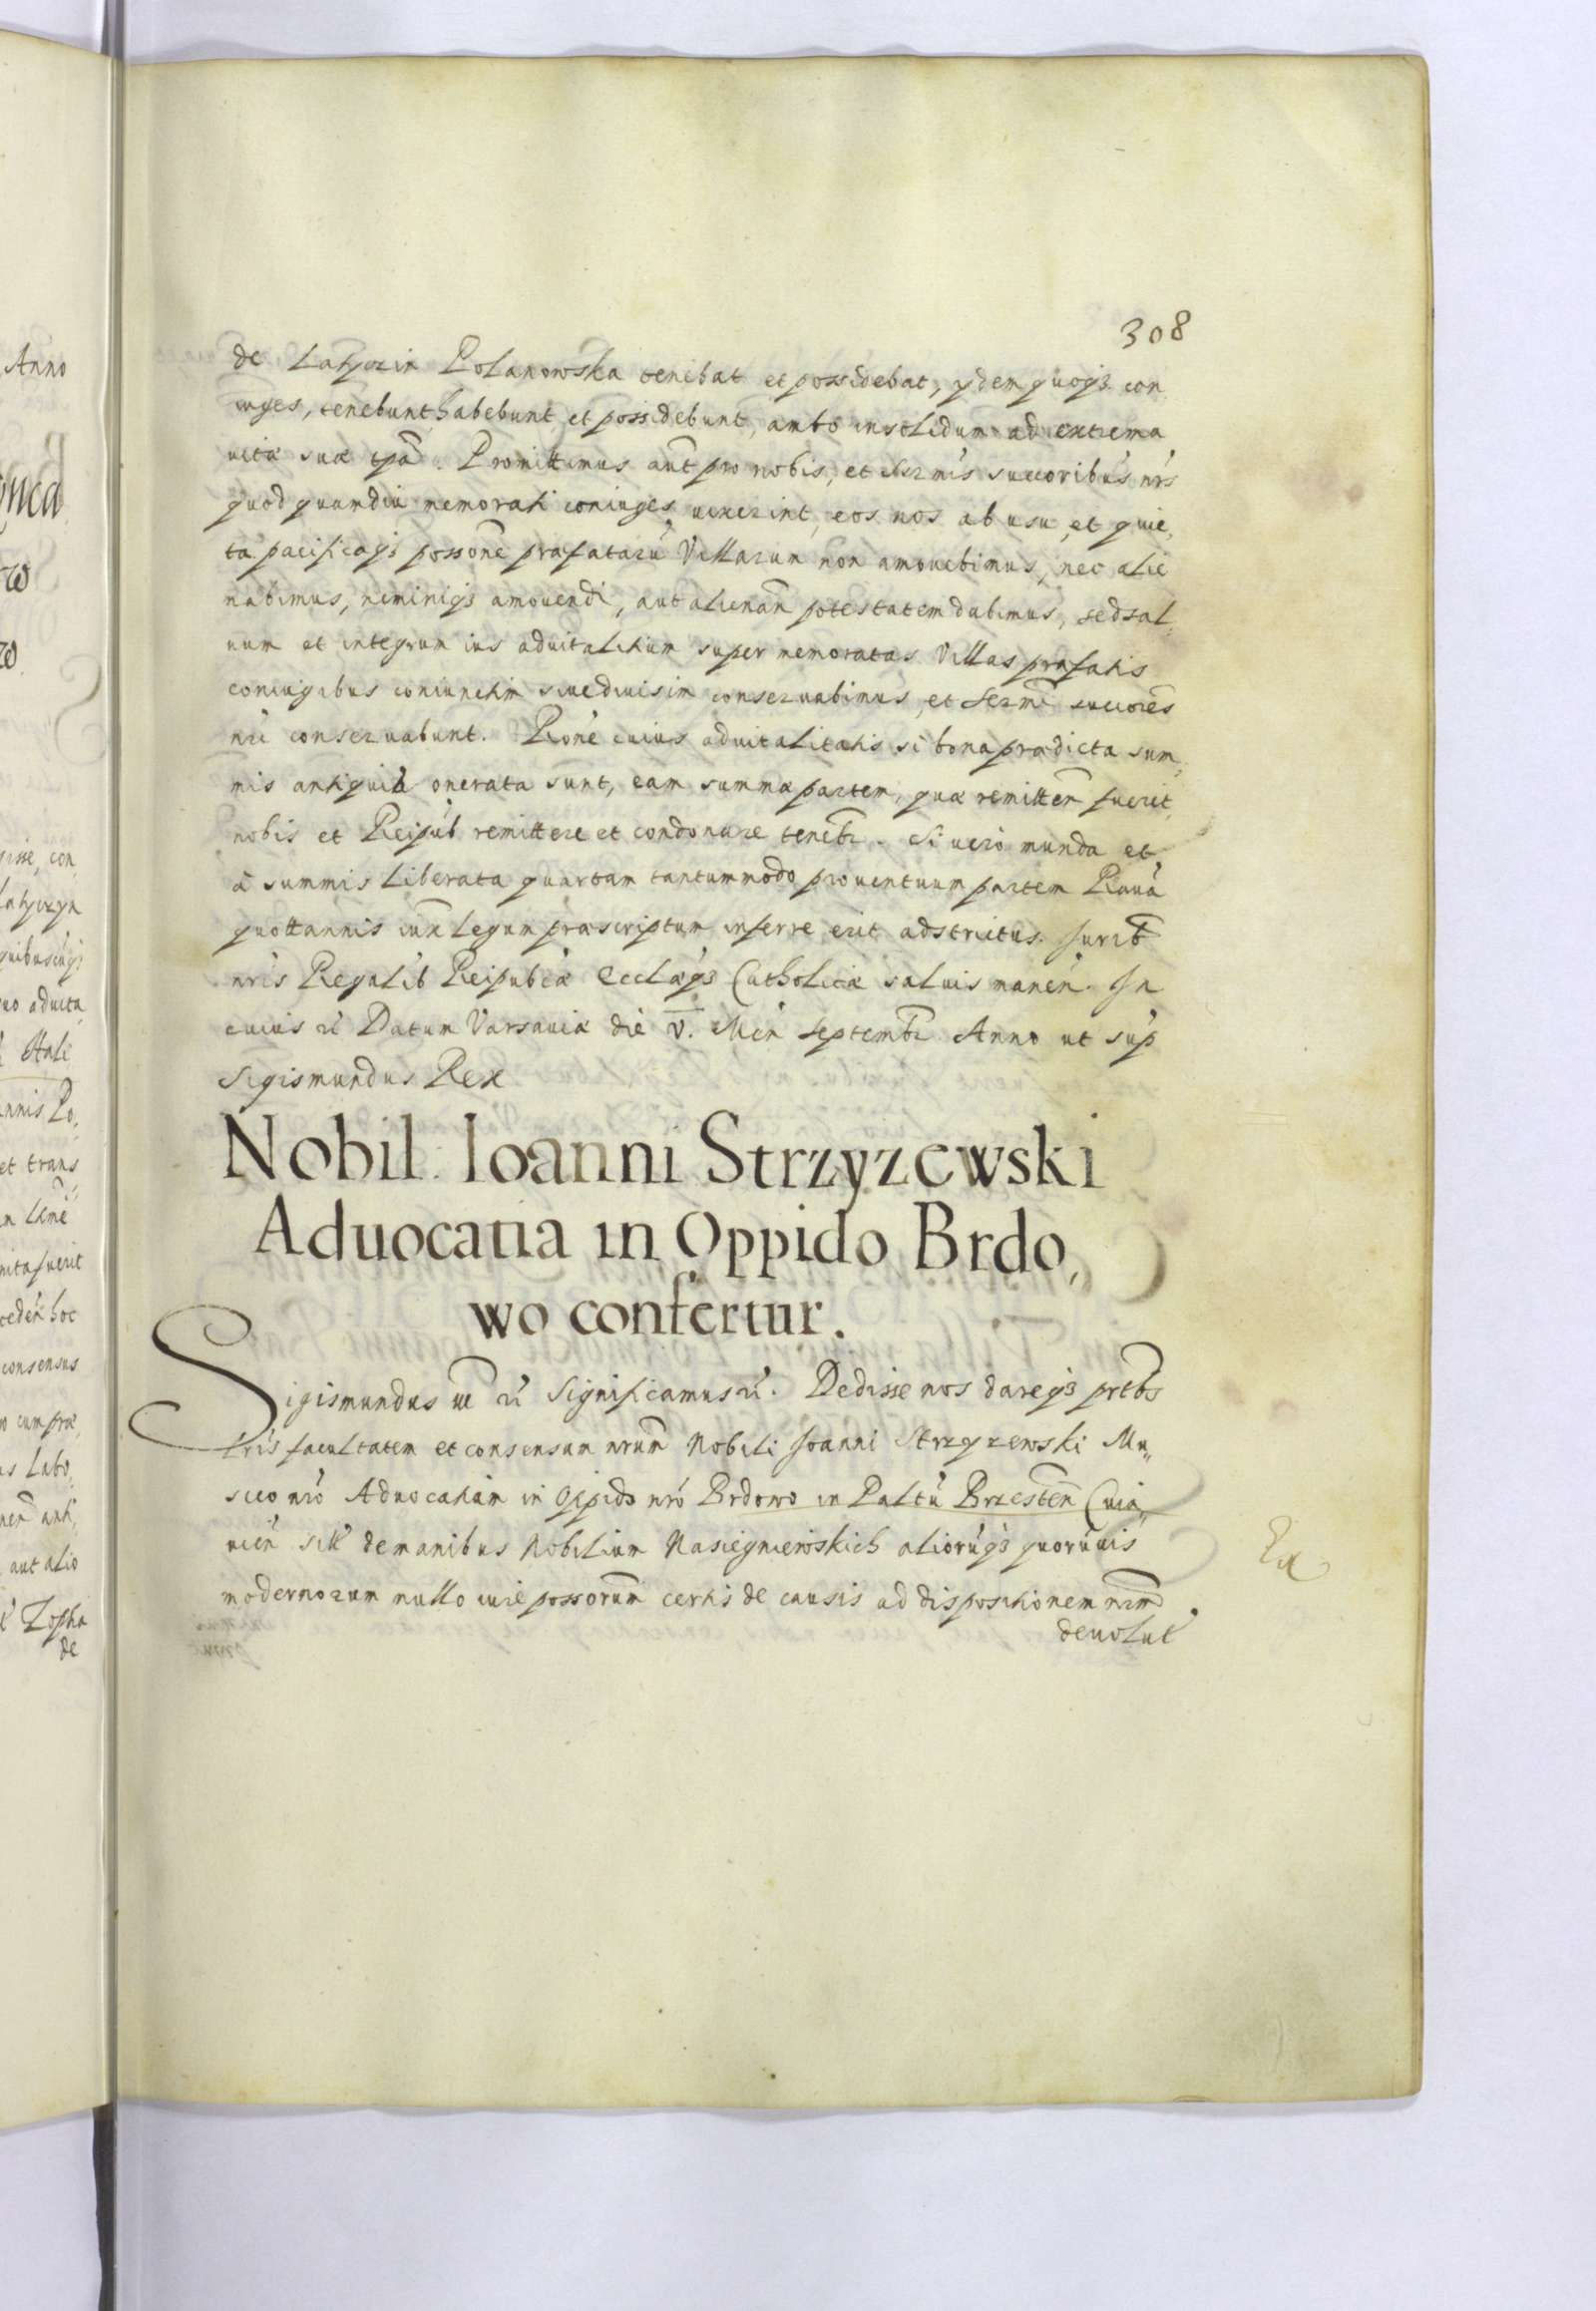 308
de Latyczin Polanowska tenebat et possidebat, ydem quoqȝ con
iuges, tenebunt, habebunt et possidebunt, ambo insolidum ad extrema
uitæ suæ tpa. Promittimus aut pro nobis, et Sermis succoribus nris
quod quamdiu memorati coniuges uixerint, eos nos ab usu, et quie,
ta pacificaqȝ possone præfataru Villarum non amouebimus, nec alie
nabimus, neminiqȝ amouendi, aut alienan potestatem dabimus, sed sal,
uum et integrum ius aduitalitium super memoratas Villas præfatis
coniugibus coniunctim siue diuisim conseruabimus, et Sermi succores
nri conseruabunt. Rone cuius aduitalitatis si bona prædicta sum,
mis antiquib onerata sunt, eam summæ partem, quæ remitten fuerit,
nobis et Reipub remittere et condonare tenebr. Si uero munda et
a summis liberata quartam tantummodo prouentuum partem Rauã
quottannis iux legum præscriptum inferre erit adstrictus. Jurib
nris Regalib Reipubcæ Ecclæqȝ Catholicæ saluis manen. In
cuius rei Datum Varsauiæ die V. Men Septembr Anno ut sup
Sigismundus Rex
Nobil. Ioanni Strzyzewski
Aduocatia in Oppido Brdo,
wo confertur.
Sigismundus III rei Significamus rei. Dedisse nos dareqȝ prtbs
lris facultatem et consensum nrum Nobili Joanni Strzyzewski Mu,,
sico nro Aduocatiam in Oppido nro Brdowo in Paltu Brzesten Cuia,,
uien sitt de manibus Nobilium Nasiegniewskich alioruqȝ quoruuis
modernorum nullo iure possorum certis de causis ad dispositionem nrm
deuolut
Ex